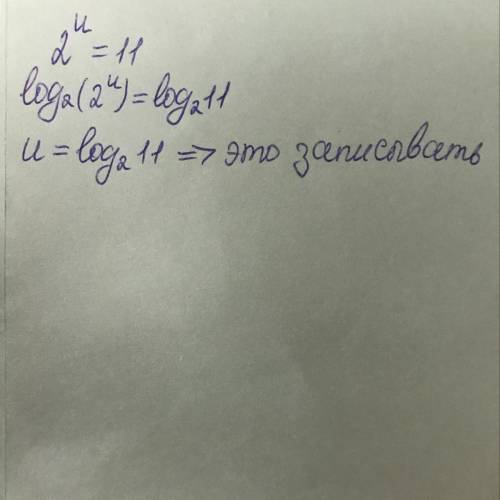 2^u = 11
log₂(2^u) = log₂11
u = log₂11 => это записывать